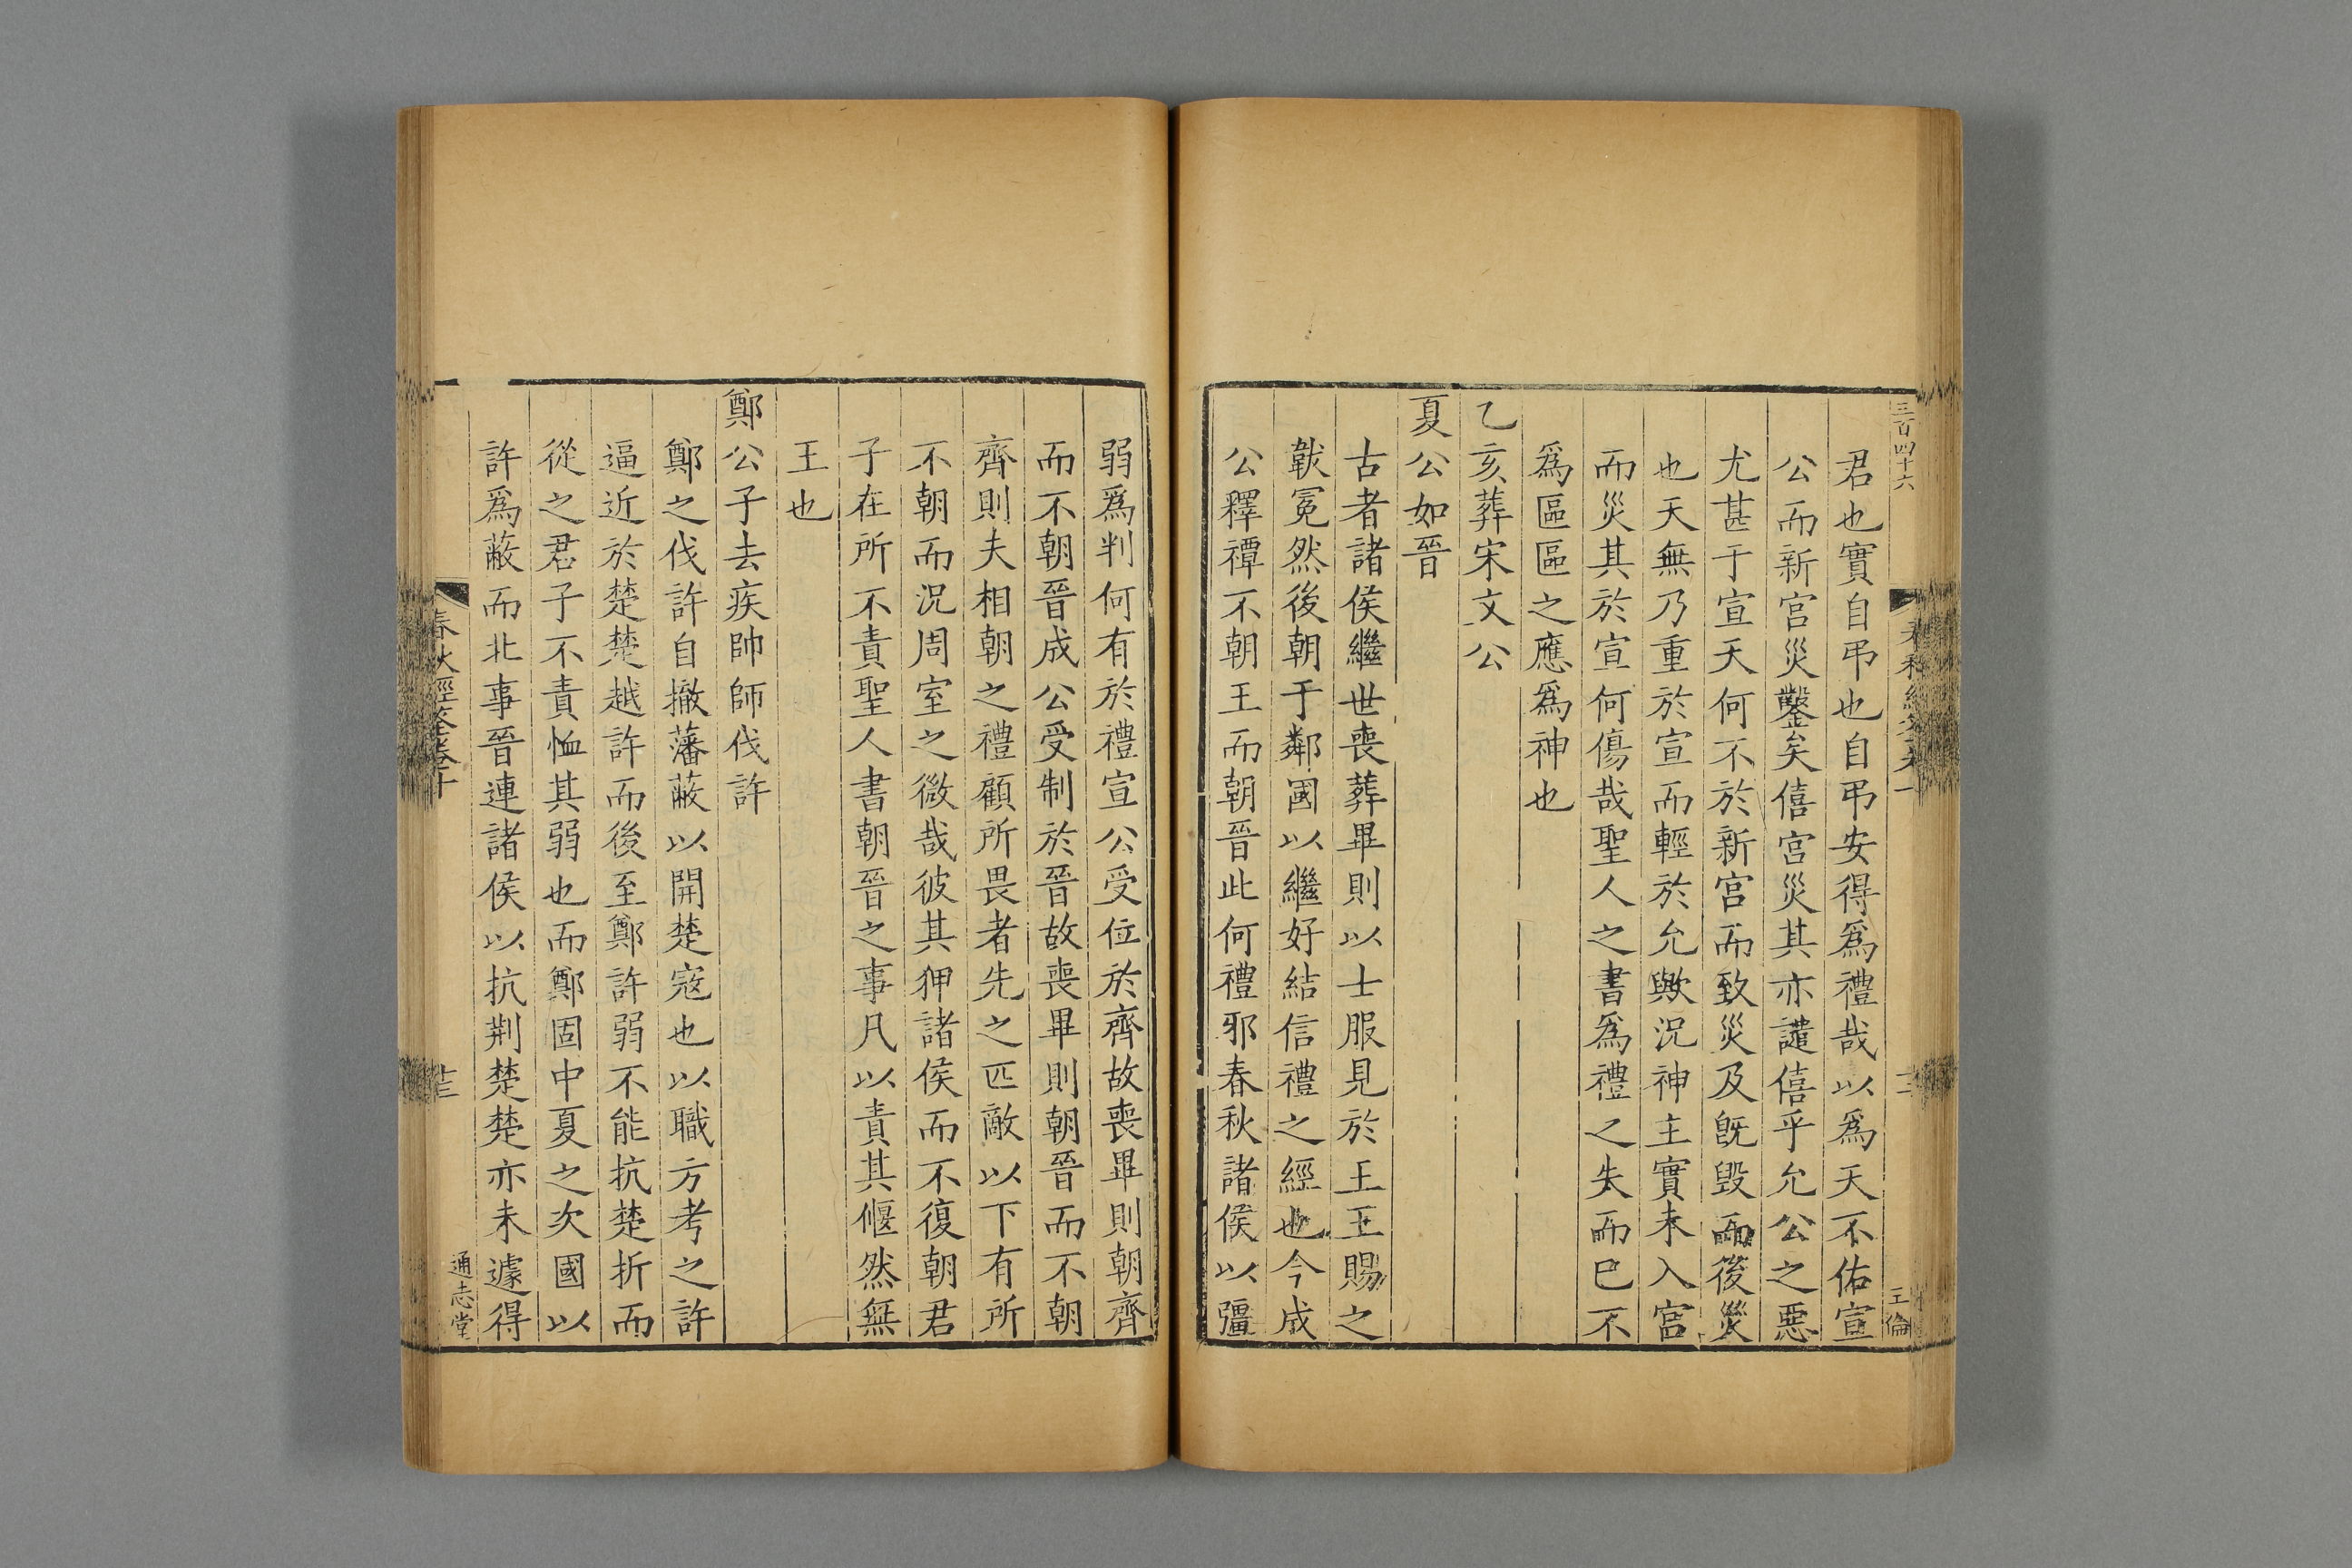 三百四十六
王倫
君也實自弔也自弔安得爲禮哉以爲天不佑宣
公而新宫災鑿矣僖宫災其亦譴僖乎允公之惡
尤甚于宣天何不於新宫而致災及旣毀而後災
也天無乃重於宣而輕於允歟況神主實未入宫
而災其於宣何傷哉聖人之書爲禮之失而巳不
爲區區之應爲神也
乙亥葬宋文公
夏公如晉
古者諸侯繼世喪葬畢則以士服見於王王賜之
韍冕然後朝于鄰國以繼好結信禮之經也今成
公釋禫不朝王而朝晉此何禮邪春秋諸侯以彊
弱爲判何有於禮宣公受位於齊故喪畢則朝齊
而不朝晉成公受制於晉故喪畢則朝晉而不朝
齊則夫相朝之禮顧所畏者先之匹敵以下有所
不朝而況周室之微哉彼其狎諸侯而不復朝君
子在所不責聖人書朝晉之事凡以責其偃然無
王也
鄭公子去疾帥師伐許
鄭之伐許自撤藩蔽以開楚寇也以職方考之許
逼近於楚楚越許而後至鄭許弱不能抗楚折而
從之君子不責恤其弱也而鄭固中夏之次國以
許爲蔽而北事晉連諸侯以抗荆楚楚亦未遽得
春秋經筌卷十
通志堂